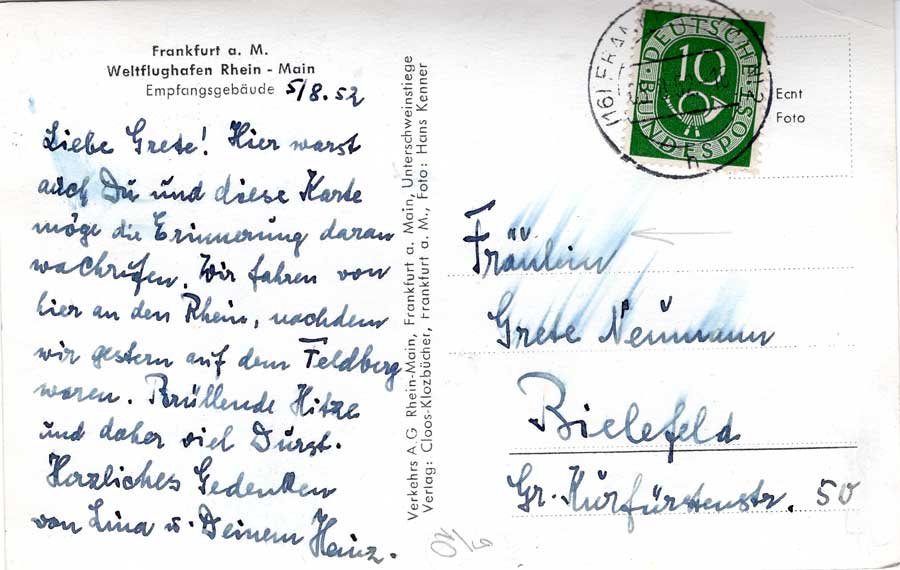 Frankfurt a. M.
Weltflughafen Rhein - Main
Empfangsgebäude 5/8.52
Liebe Grete! Hier warst
auch Du und diese Karte
möge die Erinnerung daran
wachrufen. Wir fahren von
hier an den Rhein, nachdem
wir gestern auf dem Feldberg
waren. Brüllende Hitze
und daher viel Durst.
Herzliches Gedenken
von Lina u. Deinem Heinz.
Verkehrs A.G Rhein-Main, Frankfurt a. Main, Unterschweinstiege
Verlag: Cloos-Klozbücher, Frankfurt a. M., Foto: Hans Kenner
DEUTSCHE
10
BUNDESPOST
(16) FRAN
h
Echt
Foto
Fräulein
Grete Neumann
Bielefeld
Gr. Kurfürstenstr. 50